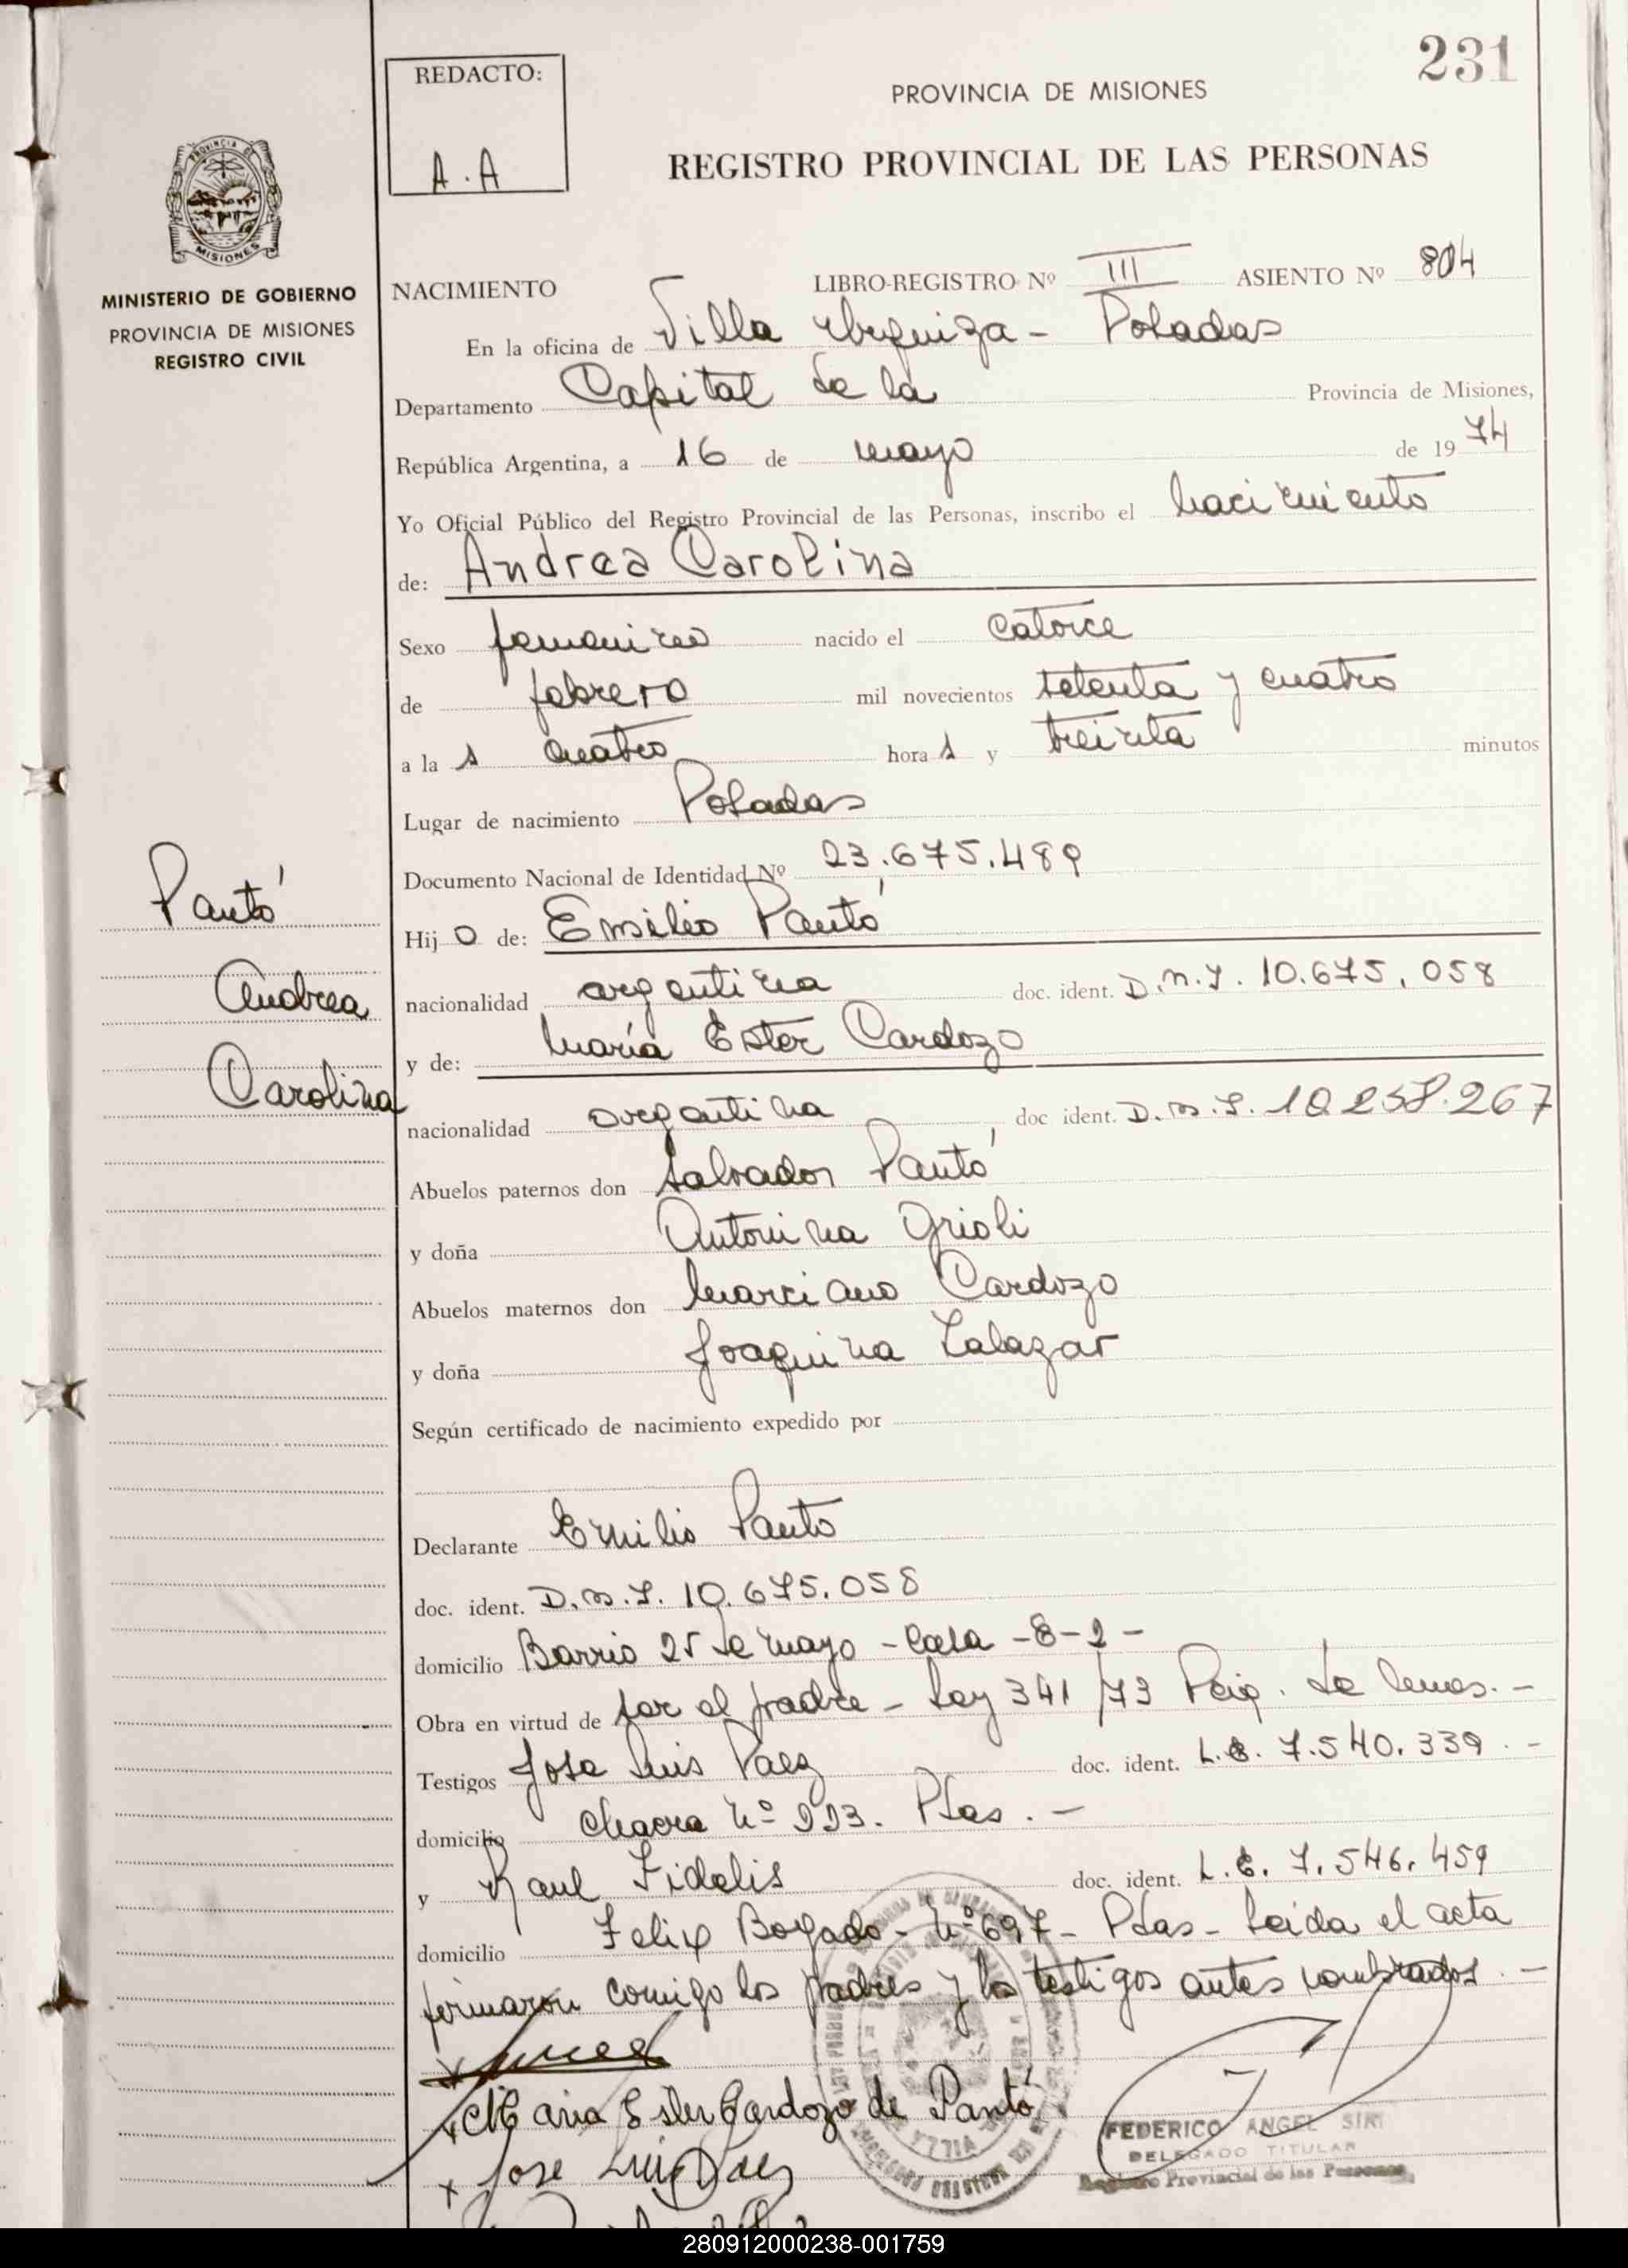 231
REDACTO:
A.A
PROVINCIA DE MISIONES
REGISTRO PROVINCIAL DE LAS PERSONAS
MINISTERIO DE GOBIERNO
PROVINCIA DE MISIONES
REGISTRO CIVIL
NACIMIENTO LIBRO-REGISTRO Nº III ASIENTO Nº 804
En la oficina de Villa Urquiza - Posadas
Departamento Capital de la Provincia de Misiones,
República Argentina, a 16 de mayo de 1974
Yo Oficial Público del Registro Provincial de las Personas, inscribo el nacimiento
de: Andrea Carolina
Sexo femenino nacido el catorce
de febrero mil novecientos setenta y cuatro
a la s cuatro hora s y treinta minutos
Lugar de nacimiento Posadas
Documento Nacional de Identidad Nº 23.675.489
Pantó
Andrea
Carolina
Hij o de: Emilio Pantó
nacionalidad argentina doc. ident. D.N.I. 10.675.058
y de: María Ester Cardozo
nacionalidad argentina doc ident. D.N.I. 10.258.267
Abuelos paternos don Salvador Pantó
y doña Antonina Grioli
Abuelos maternos don Marciano Cardozo
y doña Joaquina Salazar
Según certificado de nacimiento expedido por
Declarante Emilio Panto
doc. ident. D.N.I. 10.675.058
domicilio Barrio 25 de mayo - Casa - 8-2 -
Obra en virtud de por el padre - Ley 341/73 de
Testigos Jose Luis Paez doc. ident. L.E. 7.540.339. -
domicilio Chacra Nº Pdas. -
y Raul Fidelis doc. ident. L.E. 7.546.459
domicilio Felix Bogado - Nº 697 - Pdas - Leida el acta
firmaron comigo los padres y los testigos antes nombrados. -
x Maria Ester Cardozo de Pantó
x Jose Luis Paez
FEDERICO ANGEL SIRI
DELEGADO TITULAR
Registro Provincial de las Personas
280912000238-001759